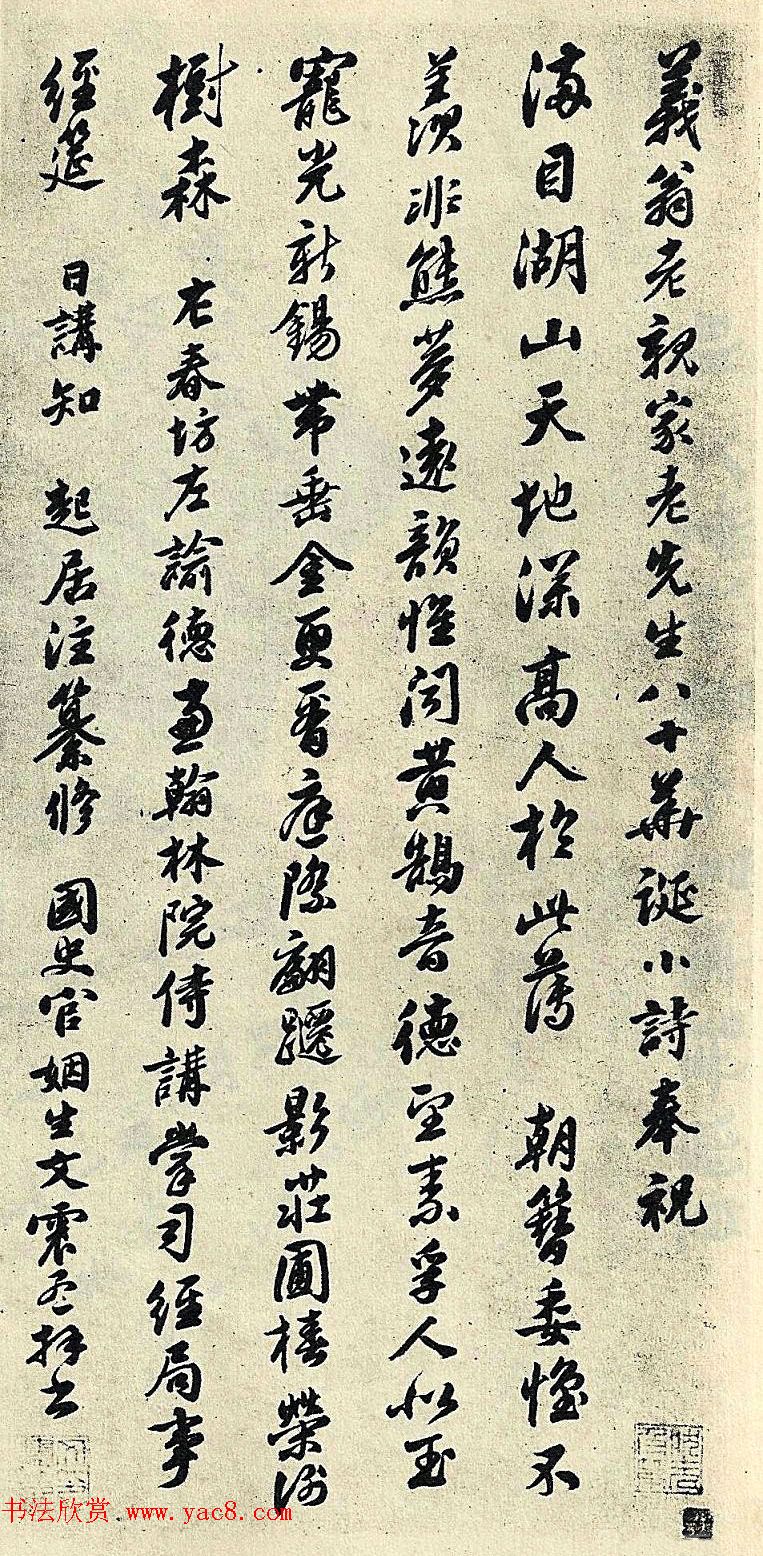 義翁老親家老先生八十華誕小詩奉祝
滿目湖山天地深高人於此薄 朝簪委懷不
羨非熊夢遠韻惟聞黃鵠音德望素孚人似玉
寵光新錫帶垂金更看庭際翩躚影莊圃椿榮謝
樹森 右春坊左諭德兼翰林院侍講掌司經局事
經筵 日講知 起居注纂修 國史官姻生文震孟拜書
书法欣赏.www.yac8.com